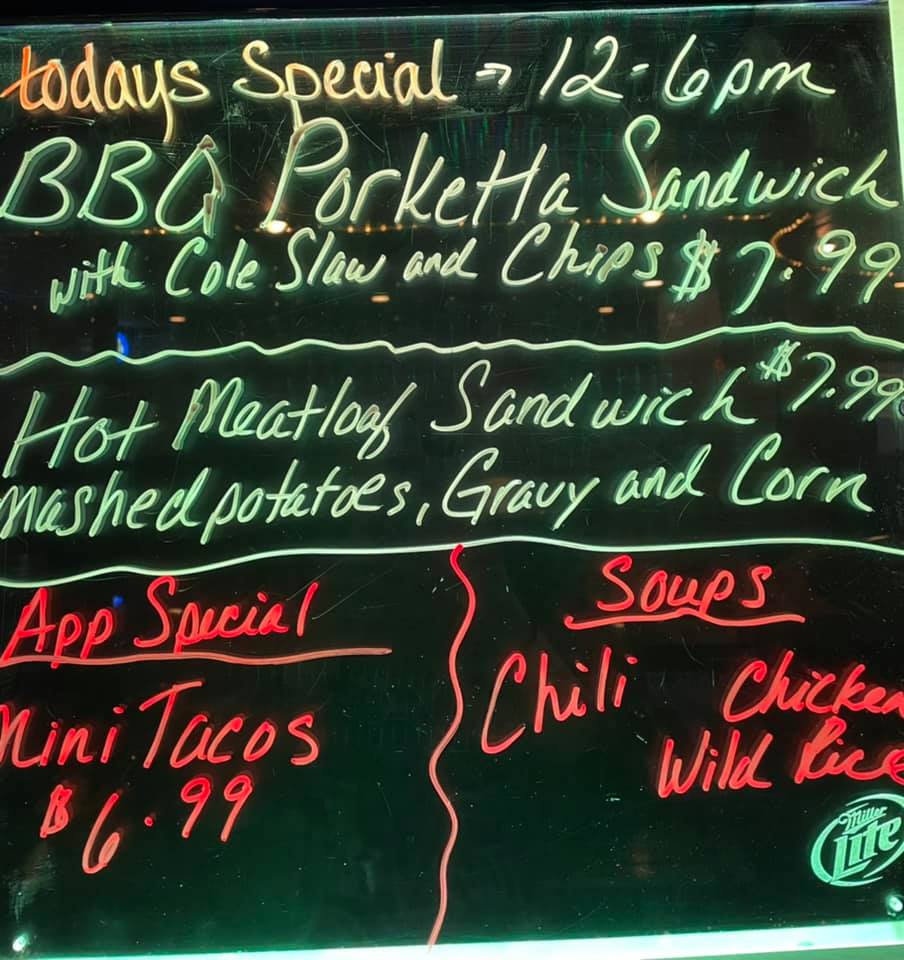 todays Special → 12-6pm
BBQ Porketta Sandwich
with Cole Slaw and Chips $7.99
Hot Meatloaf Sandwich $7.99
Mashed potatoes, Gravy and Corn
App Special
Mini Tacos
$6.99
Soups
Chili Chicken
Wild Rice
Miller
Lite